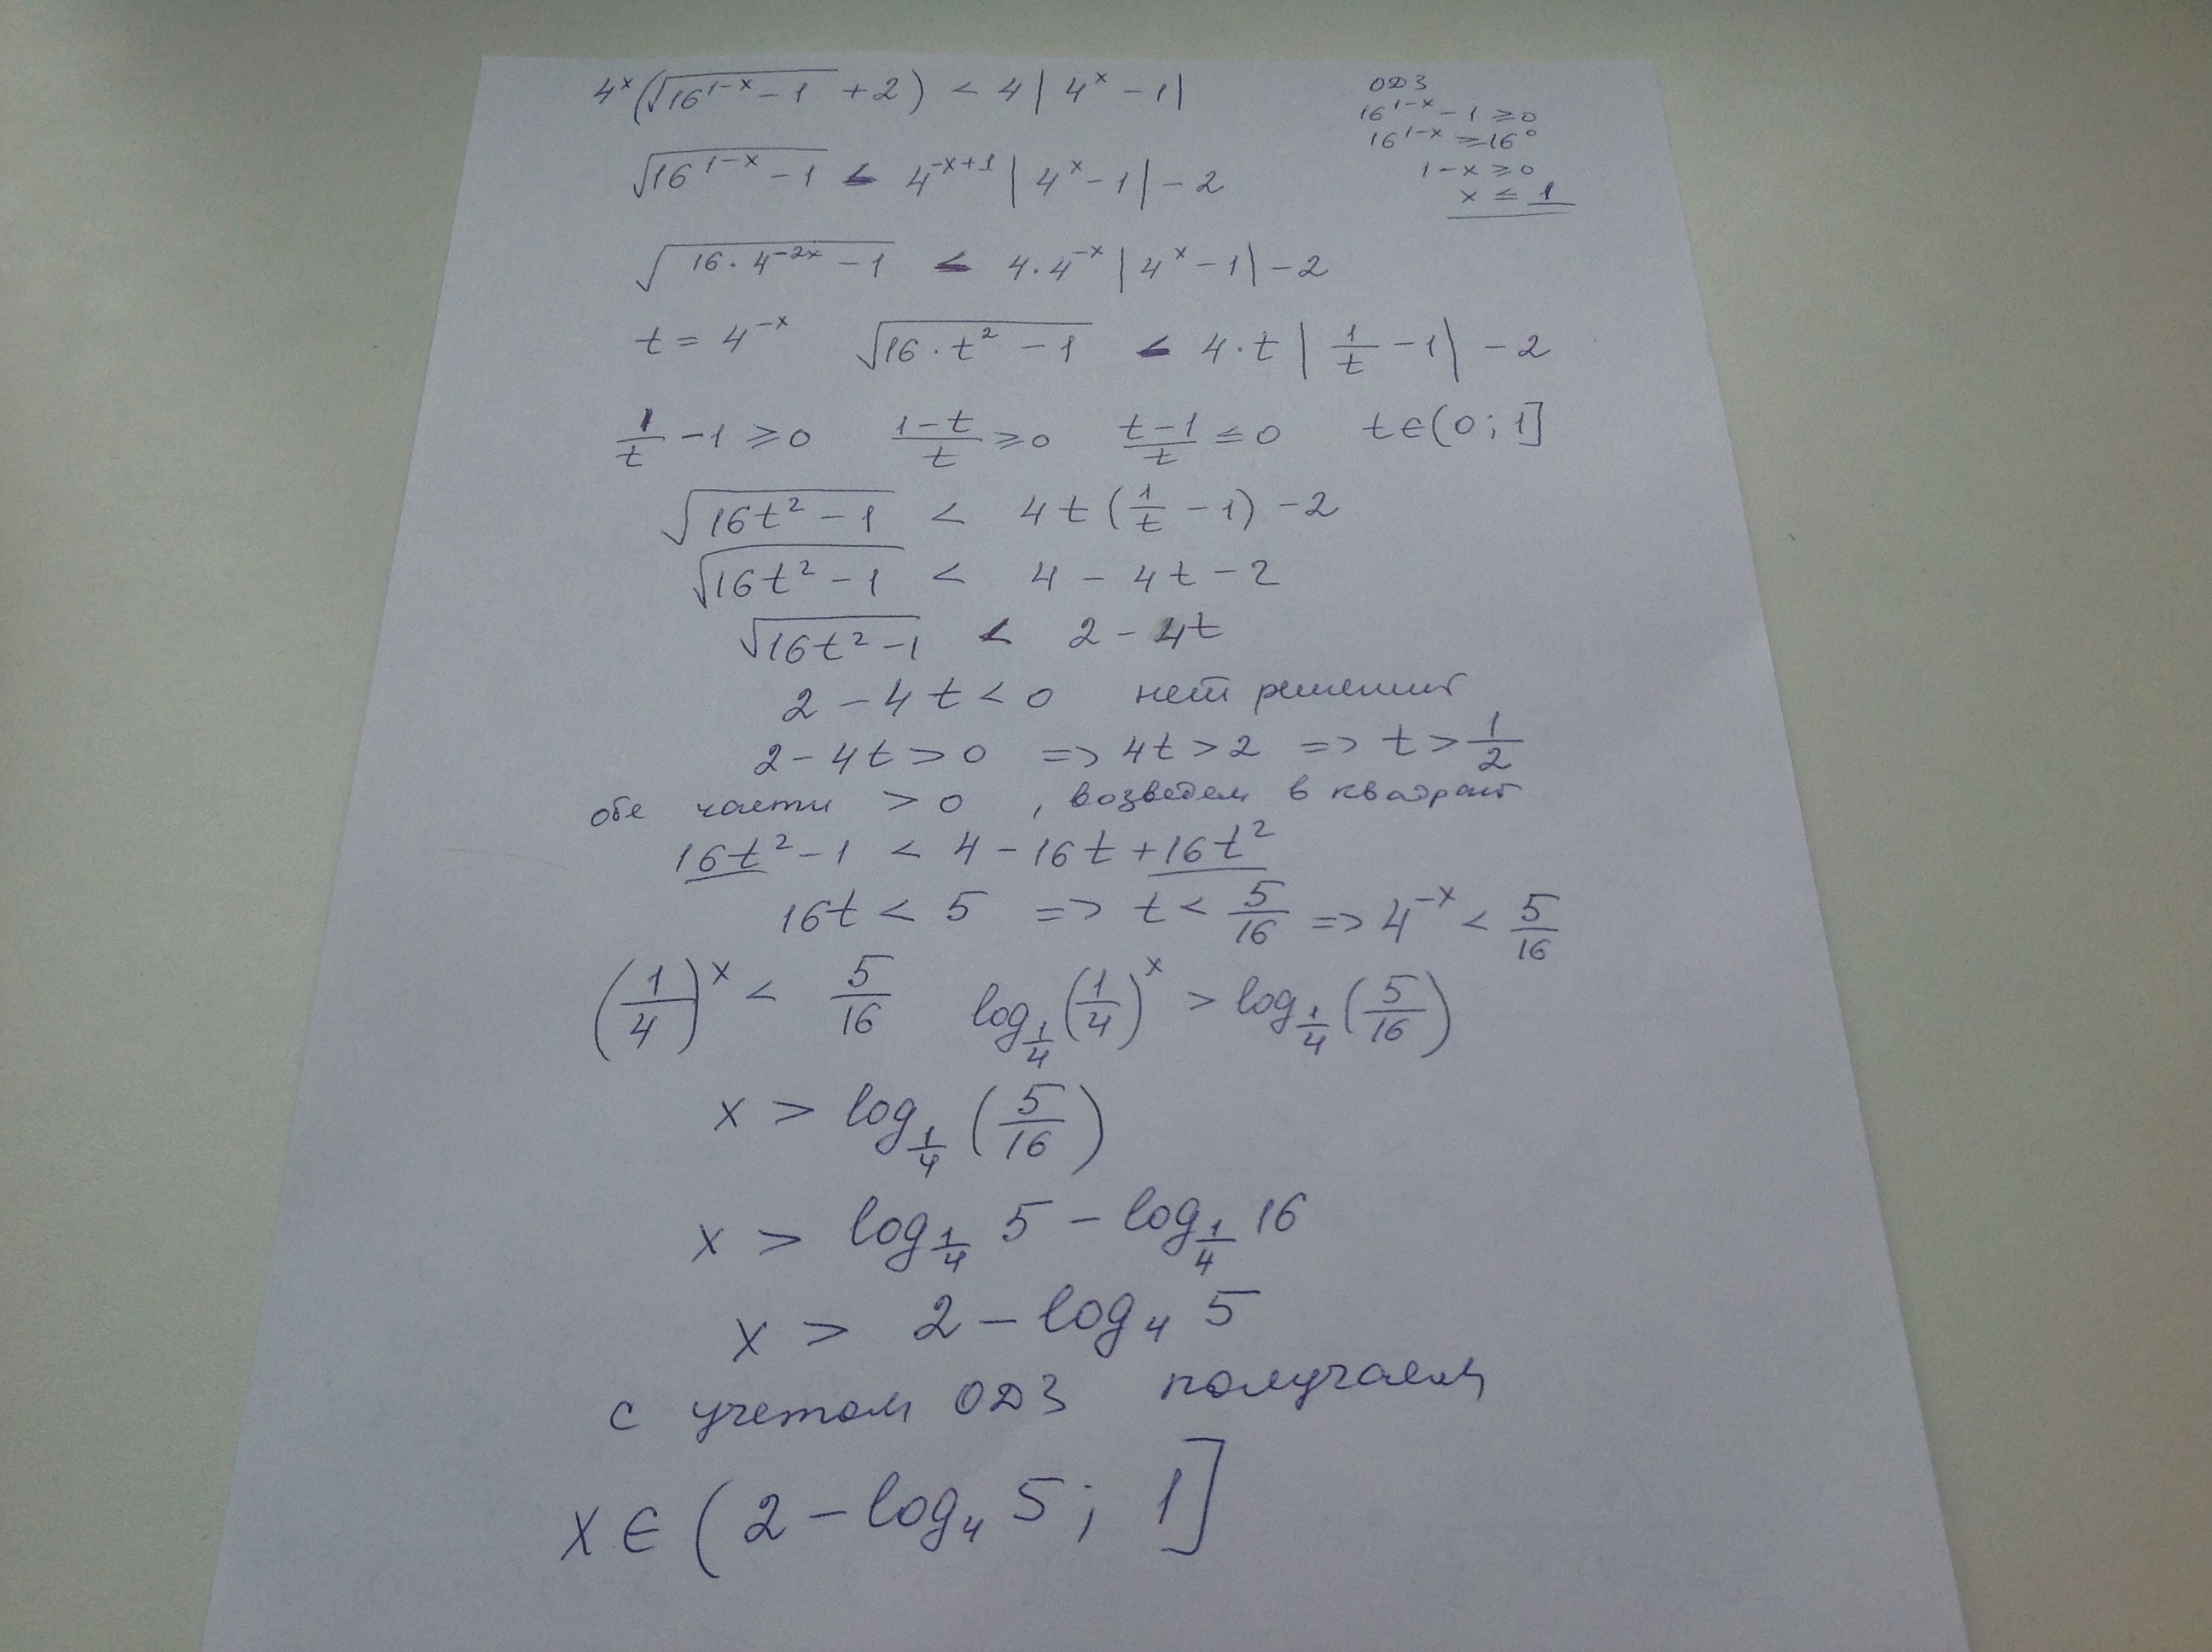 4^x (√(16^(1-x) - 1) + 2) < 4 | 4^x - 1 |
ОДЗ
16^(1-x) - 1 ≥ 0
16^(1-x) ≥ 16^0
1 - x ≥ 0
x ≤ 1
√(16^(1-x) - 1) < 4^(-x+1) | 4^x - 1 | - 2
√(16 · 4^(-2x) - 1) < 4 · 4^(-x) | 4^x - 1 | - 2
t = 4^(-x) √(16 · t² - 1) < 4 · t | 1/t - 1 | - 2
1/t - 1 ≥ 0 (1 - t)/t ≥ 0 (t - 1)/t ≤ 0 t ∈ (0 ; 1]
√(16t² - 1) < 4t (1/t - 1) - 2
√(16t² - 1) < 4 - 4t - 2
√(16t² - 1) < 2 - 4t
2 - 4t < 0 нет решений
2 - 4t > 0 => 4t > 2 => t > 1/2
обе части > 0 , возведем в квадрат
16t² - 1 < 4 - 16t + 16t²
16t < 5 => t < 5/16 => 4^(-x) < 5/16
(1/4)^x < 5/16 log_(1/4) (1/4)^x > log_(1/4) (5/16)
x > log_(1/4) (5/16)
x > log_(1/4) 5 - log_(1/4) 16
x > 2 - log_4 5
с учетом ОДЗ получаем
x ∈ (2 - log_4 5 ; 1]